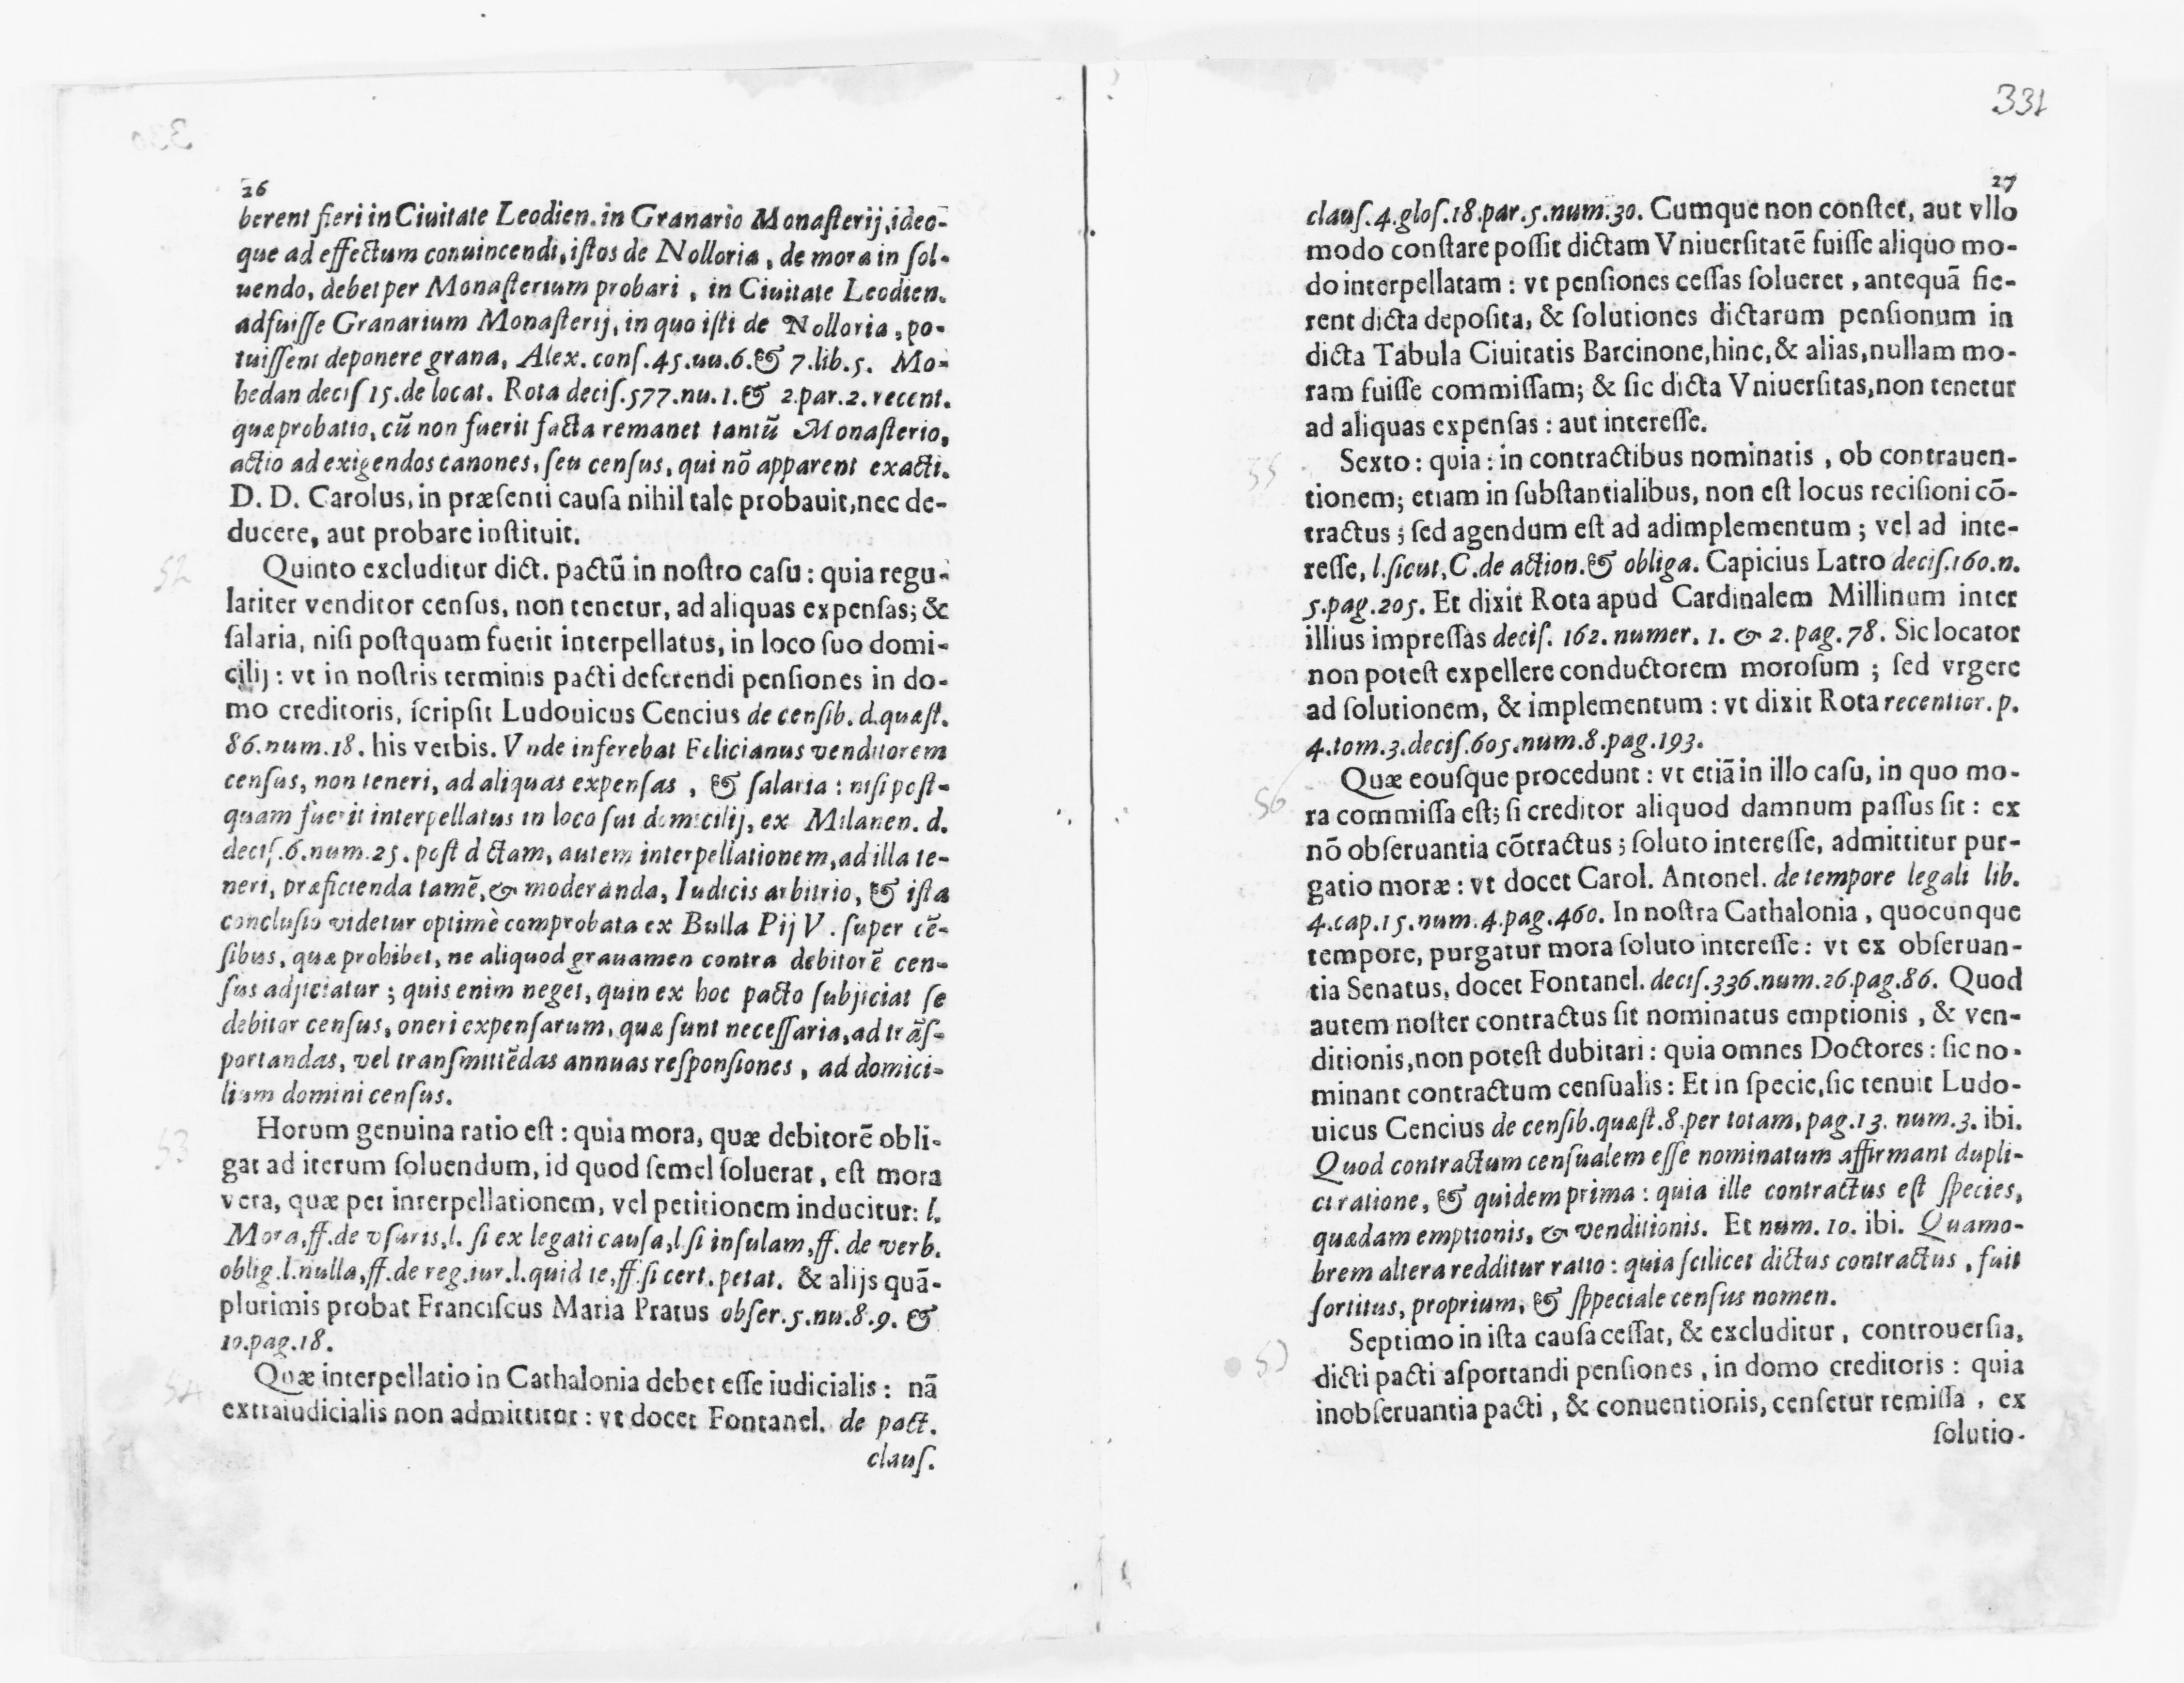 26
berent fieri in Ciuitate Leodien. in Granario Monaſterij, ideo-
que ad effectum conuincendi, iſtos de Nolloria, de mora in ſol-
uendo, debet per Monaſterium probari, in Ciuitate Leodien.
adfuiſſe Granarium Monaſterij, in quo iſti de Nolloria, po-
tuiſſent deponere grana, Alex. conſ. 45. nu. 6. & 7. lib. 5. Mo-
hedan deciſ 15. de locat. Rota deciſ. 577. nu. 1. & 2. par. 2. recent.
quæ probatio, cũ non fuerit facta remanet tantũ Monaſterio,
actio ad exigendos canones, ſeu cenſus, qui nõ apparent exacti.
D. D. Carolus, in præſenti cauſa nihil tale probauit, nec de-
ducere, aut probare inſtituit.
52
Quinto excluditur dict. pactũ in noſtro caſu: quia regu-
lariter venditor cenſus, non tenetur, ad aliquas expenſas; &
ſalaria, niſi poſtquam fuerit interpellatus, in loco ſuo domi-
cilij: vt in noſtris terminis pacti deferendi penſiones in do-
mo creditoris, ſcripſit Ludouicus Cencius de cenſib. d. quæſt.
86. num. 18. his verbis. Vnde inferebat Felicianus venditorem
cenſus, non teneri, ad aliquas expenſas, & ſalaria: niſi poſt-
quam fuerit interpellatus in loco ſui domicilij, ex Milanen. d.
deciſ. 6. num. 25. poſt d ctam, autem interpellationem, ad illa te-
neri, præficienda tamẽ, & moderanda, Iudicis arbitrio, & iſta
concluſio videtur optimè comprobata ex Bulla Pij V. ſuper cẽ-
ſibus, quæ prohibet, ne aliquod grauamen contra debitorẽ cen-
ſus adjiciatur; quis enim neget, quin ex hoc pacto ſubjiciat ſe
debitor cenſus, oneri expenſarum, quæ ſunt neceſſaria, ad trãſ-
portandas, vel tranſmittẽdas annuas reſponſiones, ad domici-
lium domini cenſus.
53
Horum genuina ratio eſt: quia mora, quæ debitorẽ obli-
gat ad iterum ſoluendum, id quod ſemel ſoluerat, eſt mora
vera, quæ per interpellationem, vel petitionem inducitur: l.
Mora, ff. de vſuris, l. ſi ex legati cauſa, l ſi inſulam, ff. de verb.
oblig. l. nulla, ff. de reg. iur. l. quid te, ff. ſi cert. petat. & alijs quã-
plurimis probat Franciſcus Maria Pratus obſer. 5. nu. 8. 9. &
10. pag. 18.
54
Quæ interpellatio in Cathalonia debet eſſe iudicialis: nã
extraiudicialis non admittitur: vt docet Fontanel. de pact.
clauſ.
331
27
clauſ. 4. gloſ. 18. par. 5. num. 30. Cumque non conſtet, aut vllo
modo conſtare poſſit dictam Vniuerſitatẽ fuiſſe aliquo mo-
do interpellatam: vt penſiones ceſſas ſolueret, antequã fie-
rent dicta depoſita, & ſolutiones dictarum penſionum in
dicta Tabula Ciuitatis Barcinone, hinc, & alias, nullam mo-
ram fuiſſe commiſſam; & ſic dicta Vniuerſitas, non tenetur
ad aliquas expenſas: aut intereſſe.
55
Sexto: quia: in contractibus nominatis, ob contrauen-
tionem; etiam in ſubſtantialibus, non eſt locus reciſioni cõ-
tractus; ſed agendum eſt ad adimplementum; vel ad inte-
reſſe, l. ſicut, C. de action. & obliga. Capicius Latro deciſ. 160. n.
5. pag. 205. Et dixit Rota apud Cardinalem Millinum inter
illius impreſſas deciſ. 162. numer. 1. & 2. pag. 78. Sic locator
non poteſt expellere conductorem moroſum; ſed vrgere
ad ſolutionem, & implementum: vt dixit Rota recentior. p.
4. tom. 3. deciſ. 605. num. 8. pag. 193.
56
Quæ eouſque procedunt: vt etiã in illo caſu, in quo mo-
ra commiſſa eſt; ſi creditor aliquod damnum paſſus ſit: ex
nõ obſeruantia cõtractus; ſoluto intereſſe, admittitur pur-
gatio moræ: vt docet Carol. Antonel. de tempore legali lib.
4. cap. 15. num. 4. pag. 460. In noſtra Cathalonia, quocunque
tempore, purgatur mora ſoluto intereſſe: vt ex obſeruan-
tia Senatus, docet Fontanel. deciſ. 336. num. 26. pag. 86. Quod
autem noſter contractus ſit nominatus emptionis, & ven-
ditionis, non poteſt dubitari: quia omnes Doctores: ſic no-
minant contractum cenſualis: Et in ſpecie, ſic tenuit Ludo-
uicus Cencius de cenſib. quæſt. 8. per totam, pag. 13. num. 3. ibi.
Quod contractum cenſualem eſſe nominatum affirmant dupli-
ci ratione, & quidem prima: quia ille contractus eſt ſpecies,
quædam emptionis, & venditionis. Et num. 10. ibi. Quamo-
brem altera redditur ratio: quia ſcilicet dictus contractus, fuit
ſortitus, proprium, & ſppeciale cenſus nomen.
Septimo in iſta cauſa ceſſat, & excluditur, controuerſia,
dicti pacti aſportandi penſiones, in domo creditoris: quia
inobſeruantia pacti, & conuentionis, cenſetur remiſſa, ex
ſolutio-